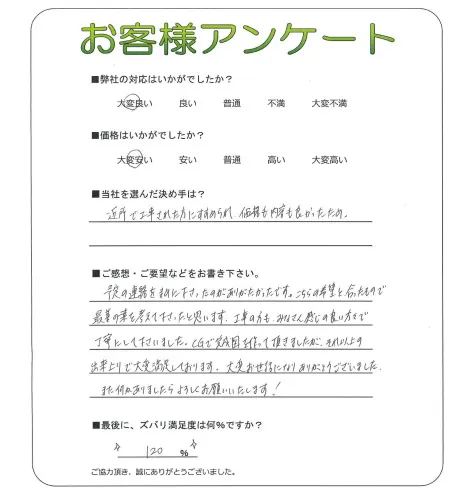 お客様アンケート
■弊社の対応はいかがでしたか?
大変良い 良い 普通 不満 大変不満
■価格はいかがでしたか?
大変安い 安い 普通 高い 大変高い
■当社を選んだ決め手は?
近所で工事された方にすすめられ、価格も内容も良かったため。
■ご感想・ご要望などをお書き下さい。
予定の連絡をまめに下さったのがありがたかったです。こちらの希望と合ったもので
最善の策を考えて下さったと思います。工事の方も、みなさん感じの良い方々で
丁寧にして下さいました。CGで完成図を作って頂きましたが、それ以上の
出来上りで大変満足しております。大変お世話になりありがとうございました。
また何かありましたらよろしくお願いいたします!
■最後に、ズバリ満足度は何%ですか?
120 %
ご協力頂き、誠にありがとうございました。